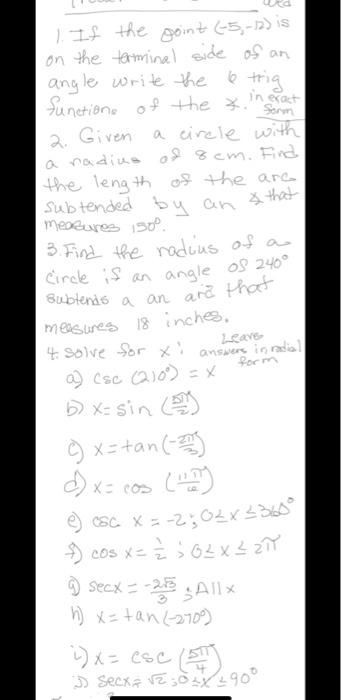 1. If the point (-5,-12) is
on the terminal side of an
angle write the 6 trig
functions of the ∡. in exact
form
2. Given a circle with
a radius of 8 cm. Find
the length of the arc
subtended by an ∡ that
measures 150°.
3. Find the radius of a
circle if an angle of 240°
subtends a an arc that
measures 18 inches.
4. Solve for x: Leave
answers in radial
form
a) csc (210°) = x
b) x = sin (5π/2)
c) x = tan (-2π/3)
d) x = cos (11π/6)
e) csc x = -2; 0≤x≤360°
f) cos x = 1/2; 0≤x≤2π
g) sec x = -2√3/3; All x
h) x = tan (-270°)
i) x = csc (5π/4)
j) sec x = √2; 0≤x≤90°